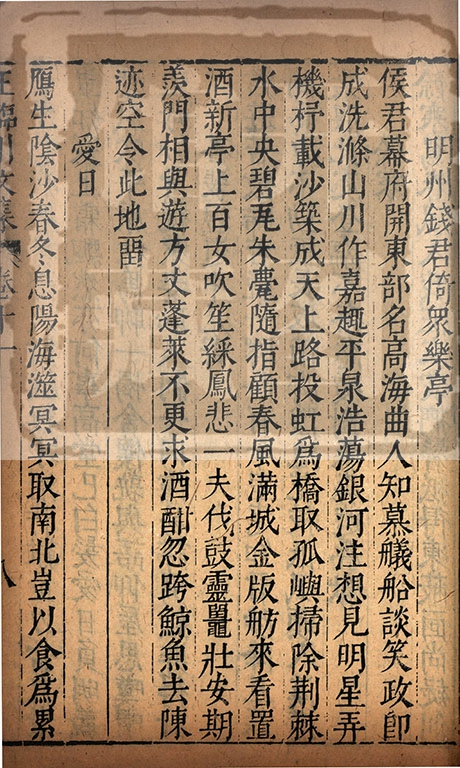 明州錢君倚衆樂亭
侯君幕府開東部名高海曲人知慕艤船談笑政卽
成洗滌山川作嘉趣平泉浩蕩銀河注想見明星弄
機杼載沙築成天上路投虹爲橋取孤嶼掃除荆棘
水中央碧瓦朱甍隨指顧春風滿城金版舫來看置
酒新亭上百女吹笙綵鳳悲一夫伐鼓靈鼉壯安期
羨門相與遊方丈蓬萊不更求酒酣忽跨鯨魚去陳
迹空令此地畱
愛日
鴈生陰沙春冬息陽海澨冥冥取南北豈以食爲累